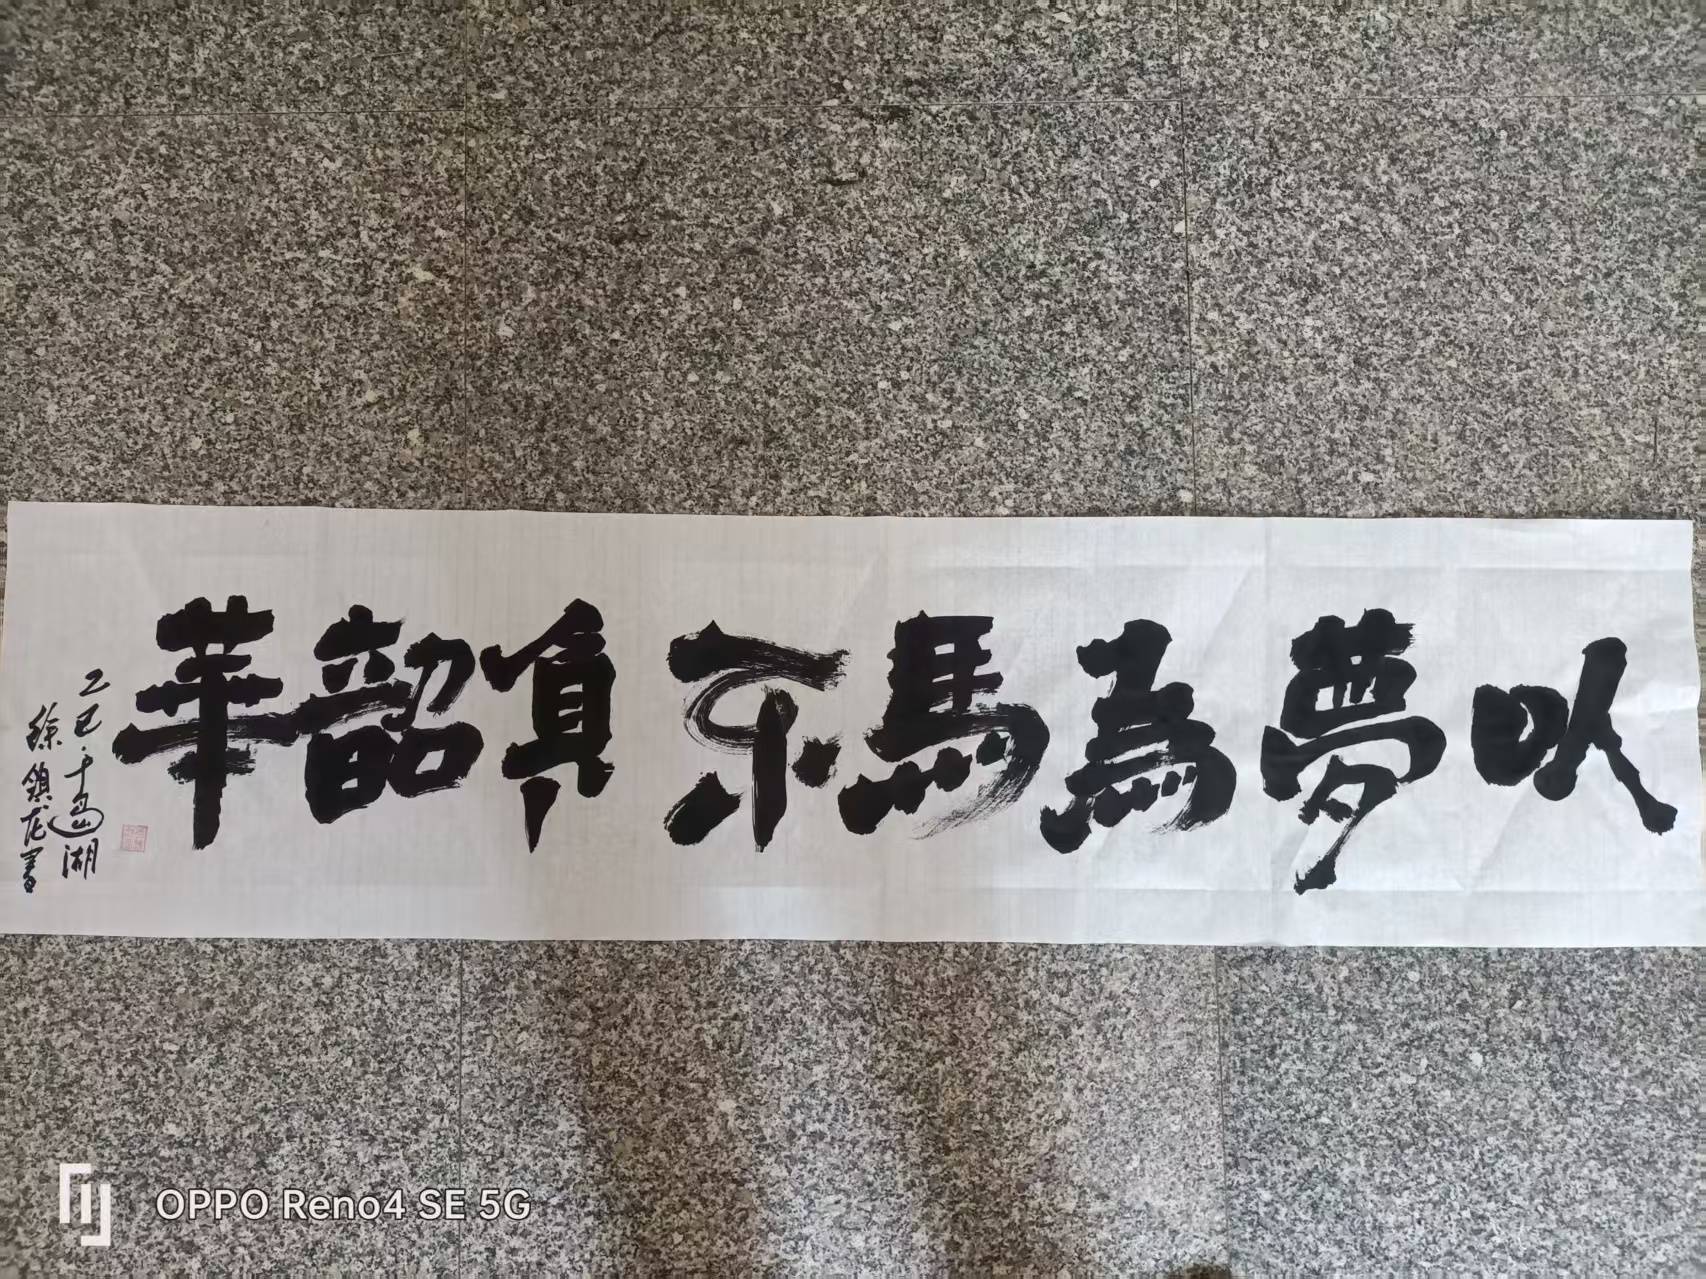 以夢為馬不負韶華
乙巳·千島湖
徐鎖龙書
OPPO Reno4 SE 5G